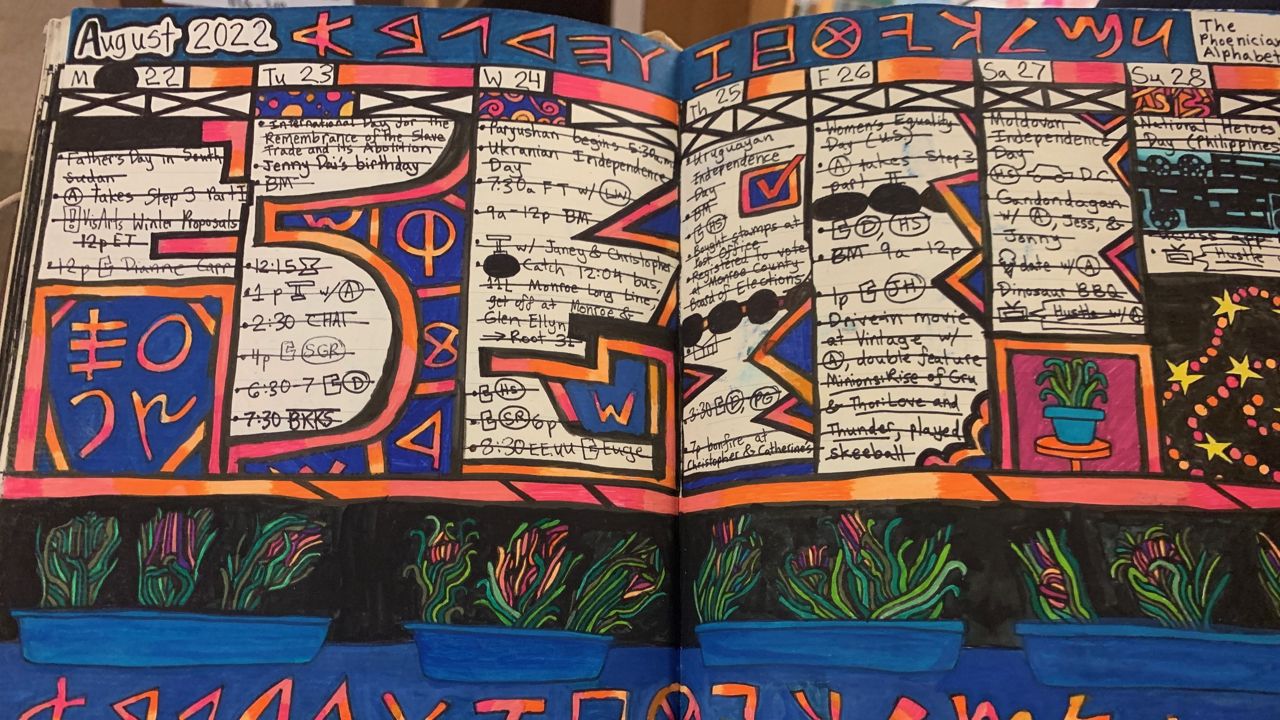 August 2022
The
Phoenician
Alphabet
M 22
Father's Day in South
Sudan
Ⓐ Takes Step 3 Part I
VisArts Winter Proposals
12p ET
12p Dianne Carr
Tu 23
International Day for the
Remembrance of the Slave
Trade and its Abolition
Jenny Dai's birthday
BM
12:15
1p w/ Ⓐ
2:30 CHAI
4p SGR
6:30-7 D
7:30 BKKS
W 24
Paryushan begins 5:30am
Ukranian Independence
Day
7:30a FT w/ LW
9a-12p BM
w/ Janey & Christopher
Catch 12:04 bus,
11L Monroe Long Line,
get off at Monroe &
Glen Ellyn
→ Root 31
HS
SR 6p
8:30 EE.UU Euge
Th 25
Uruguayan
Independence
Day
BM
HS
Bought stamps at
Post Office
Registered to vote
at Monroe County
Board of Elections
3:30 D, PG
7p bonfire at
Christopher & Catherine's
F 26
Women's Equality
Day (US)
Ⓐ takes Step 3
part II
D, HS
BM 9a-12p
1p JH
Drive-in movie
at Vintage w/
Ⓐ, double feature
Minions: Rise of Gru
& Thor: Love and
Thunder, played
skeeball
Sa 27
Moldovan
Independence
Day
HS DC
Gandondagan
w/ Ⓐ, Jess, &
Jonny
date w/ Ⓐ
Dinosaur BBQ
Hustle w/ Ⓐ
Su 28
National Heroes
Day (Philippines
Hustle